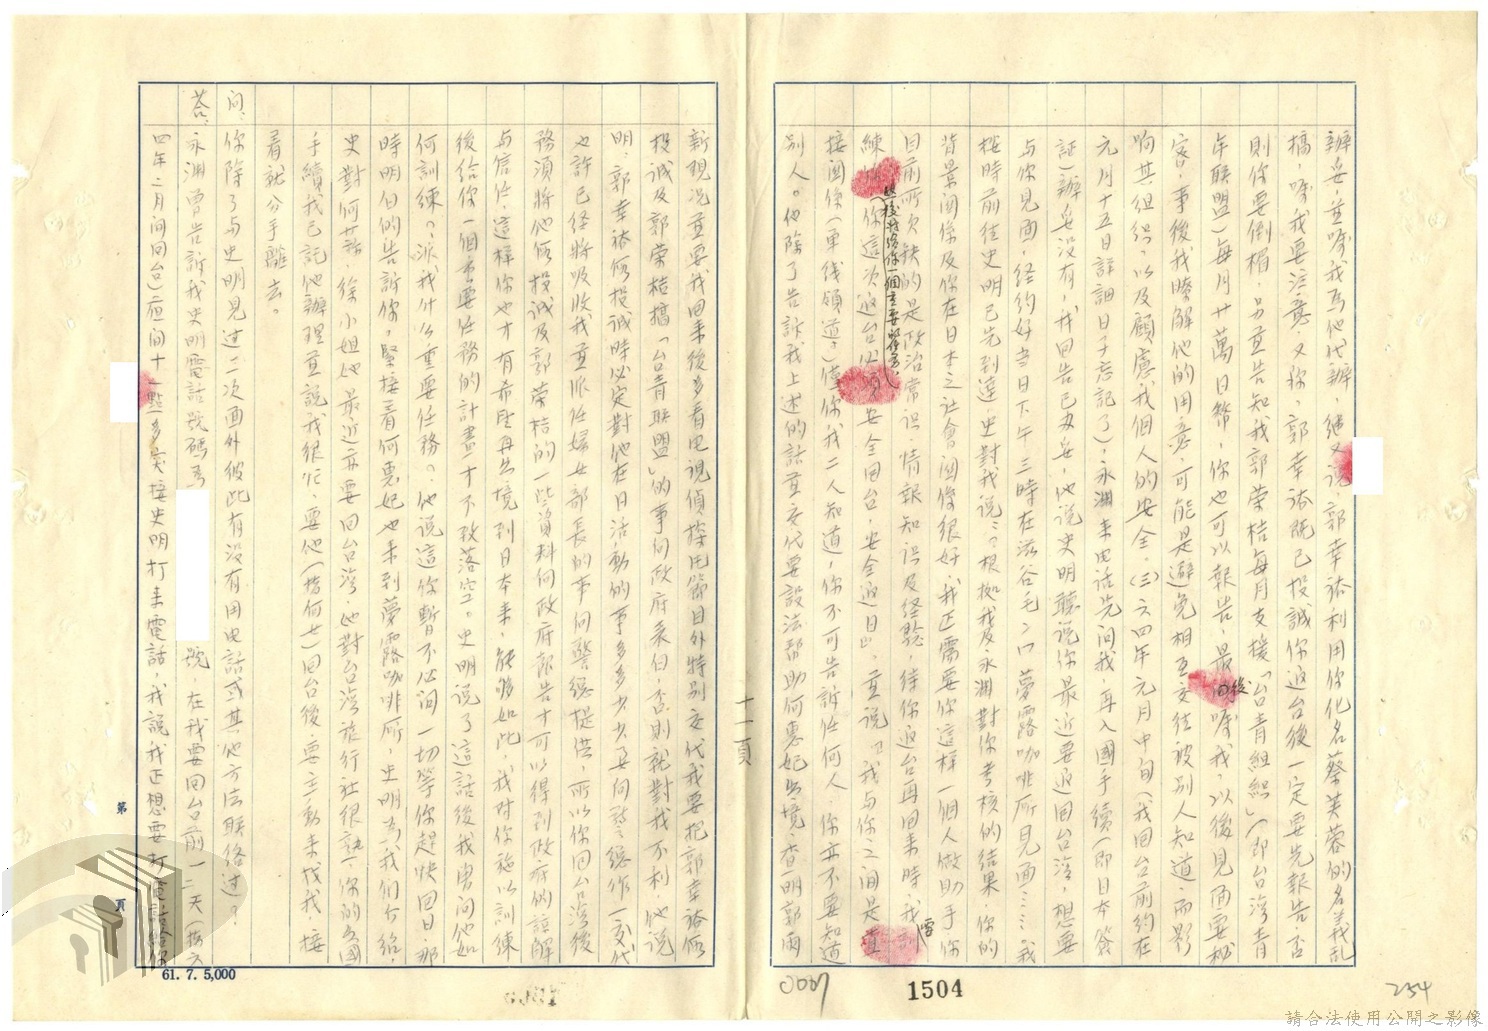 辦妥，並囑我為他代辦，繼又說：郭幸裕利用你化名蔡芙蓉的名義亂
搞，囑我要注意，又称，郭幸裕既已投誠你返台後一定要先報告，否
則你要倒楣，另並告知我郭榮桔每月支援「台青組織」（即台湾青
年联盟）每月廿萬日幣，你也可以報告，最後囑我，以後見面要秘
密，事後我瞭解他的用意，可能是避免相互交往被別人知道，而影
响其組織，以及顧慮我個人的安全。(三)六四年元月中旬（我回台前約在
元月十五日詳細日子忘記了）永淵來电话先問我，再入國手續（即日本簽
証）辦妥没有，我回告已办妥，他說史明聽说你最近要返回台湾，想要
与你見面，经約好当日下午三時在滋谷毛入口夢露咖啡所見面……我
按時前往史明已先到達，史對我説：根據我及永淵對你考核的结果，你的
背景関係及你在日本之社會関係很好，我正需要你這样一個人做助手，你
目前所欠缺的是政治常识、情報知识及经驗，待你返台再回来時，我需訓
練你，後我給你一個主要的任务，你這次返台必須安全回台，安全返日，並说『我与你之间是直
接関係（單线領道）僅你我二人知道，你不可告訴任何人，你亦不要知道
別人。他除了告訴我上述的話並交代要設法幇助何惠妃出境，查明郭雨
新現况並要我回来後多看电視偵探片節目外特別交代我要把郭幸裕何
投诚及郭荣桔搞「台青联盟」的事向政府表白，否則就對我不利，他说
明：郭幸裕何投诚時必定對他在日活動的事多多少少要向警總作一交代
也許已经將吸收我並派任婦女部長的事向警總提供，所以你回台湾後
務須將他何投诚及郭荣桔的一些資料向政府報告才可以得到政府的諒解
与信任，這样你也才有希望再出境到日本来，能够如此，我对你施以訓練
後给你一個重要任務的計畫才不致落空。史明说了這話後我曾问他如
何訓練？派我什么重要任務？他说這你暫不必问一切等你趕快回日那
時明白的告訴你，緊接着何惠妃也来到夢露咖啡所，史明為我们介紹，
史對何女話，徐小姐她最近亦要回台湾，她對台湾旅行社很熟，你的出國
手續我已託他辦理並說我很忙，要他（指何女）回台後要主動来找我，接
着就分手離去。
问：你除了与史明見过二次面外彼此有没有用电話或其他方法联络过？
荅：永淵曾告訴我史明電話號碼為　　　號，在我要回台前一二天（按六
四年二月间回台）夜间十一點多突接史明打来電話，我説我正想要打電話給你
十一頁
第　頁
61. 7. 5,000
0007
1504
254
請合法使用公開之影像